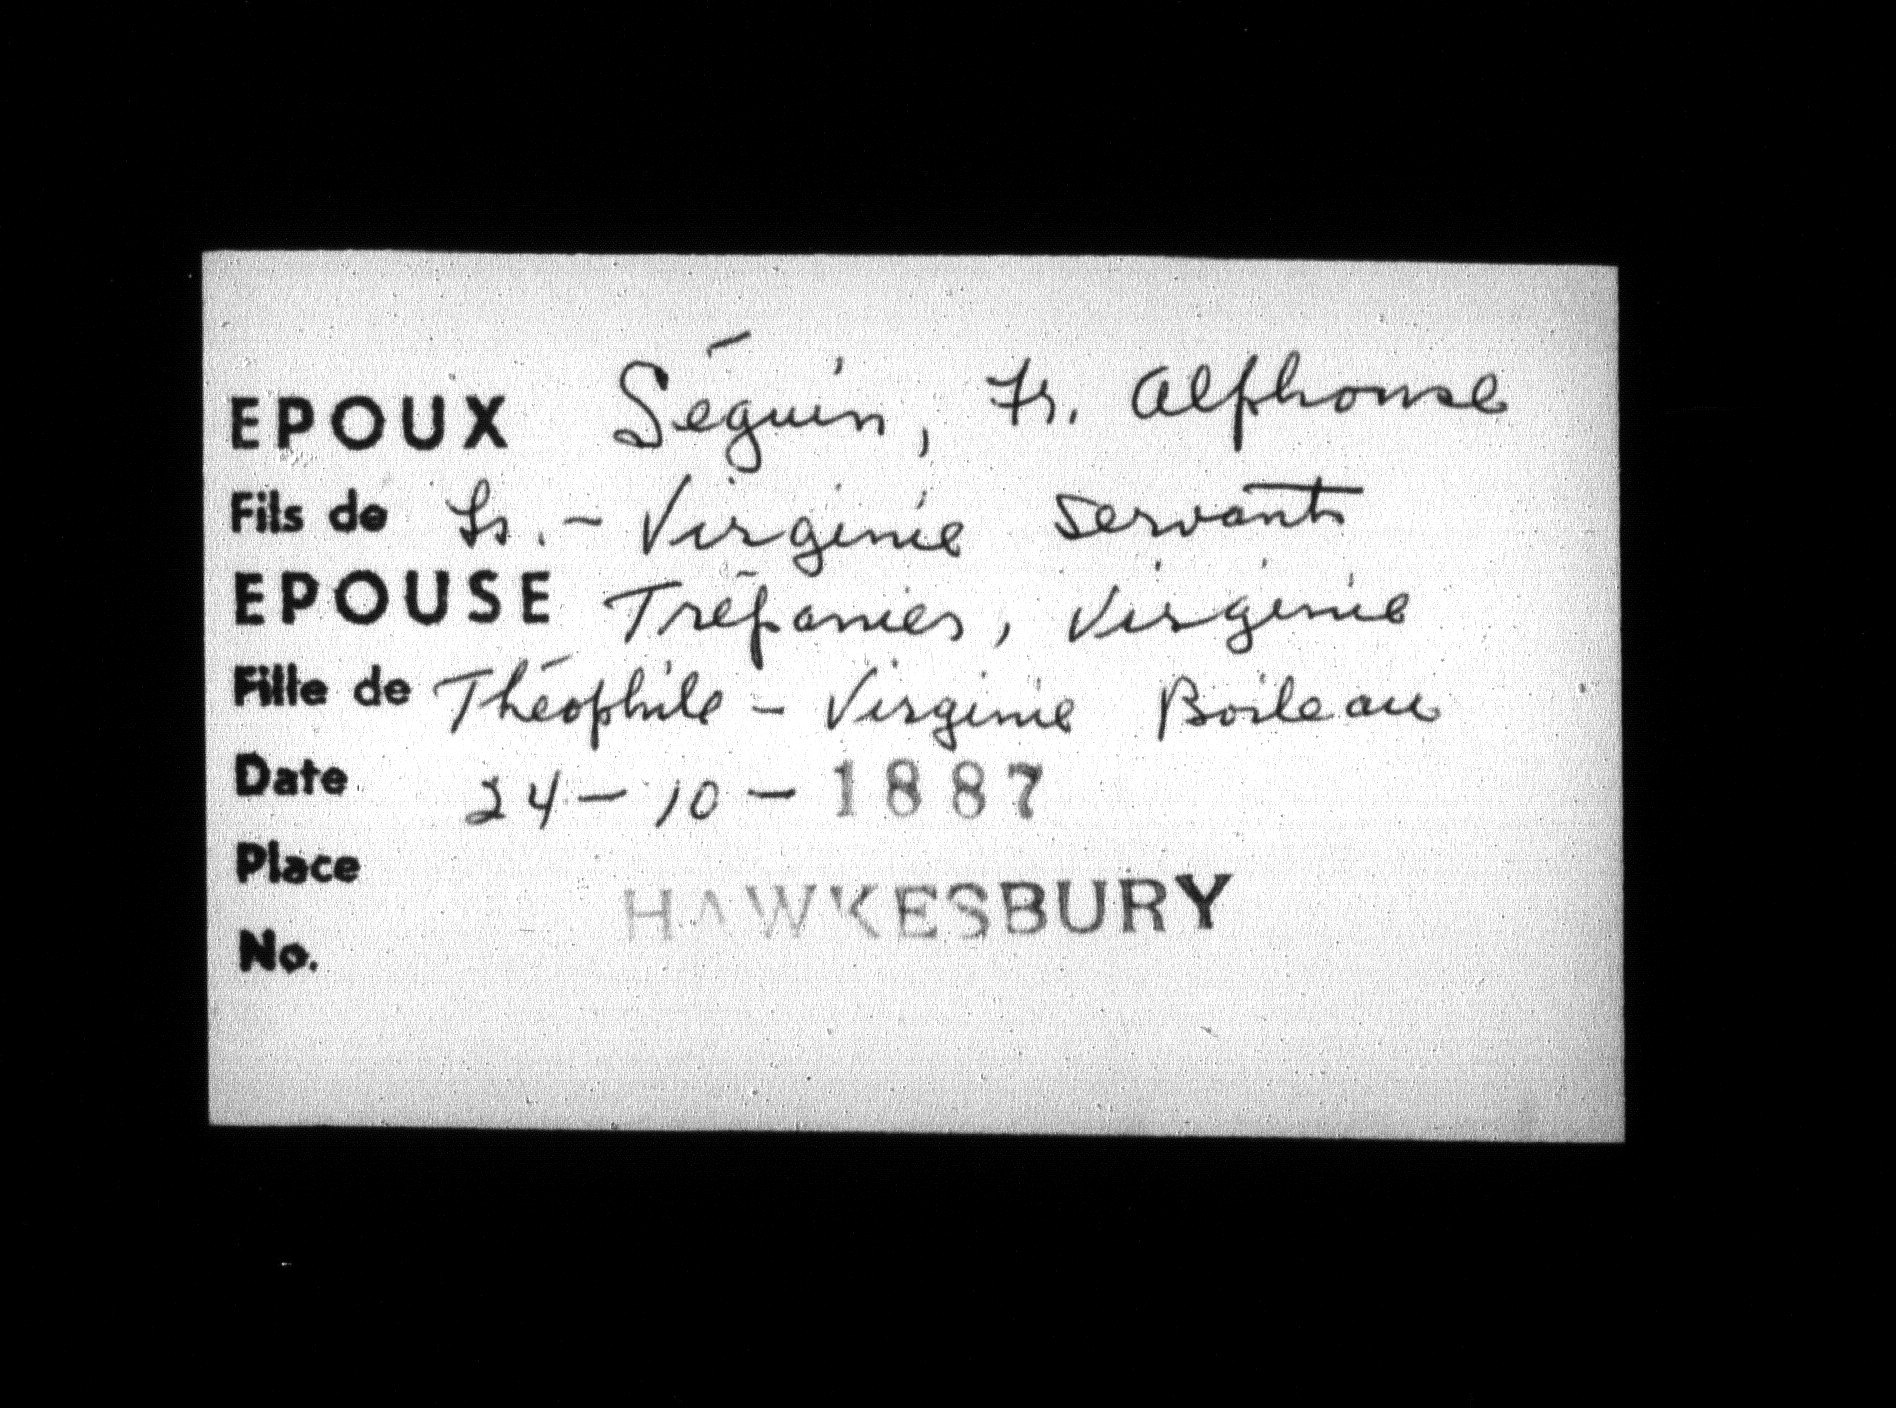 EPOUX Séguin, Fr. Alphonse
Fils de Ls. - Virginie Servant
EPOUSE Trépanier, Virginie
Fille de Théophile - Virginie Boileau
Date 24-10-1887
Place HAWKESBURY
No.